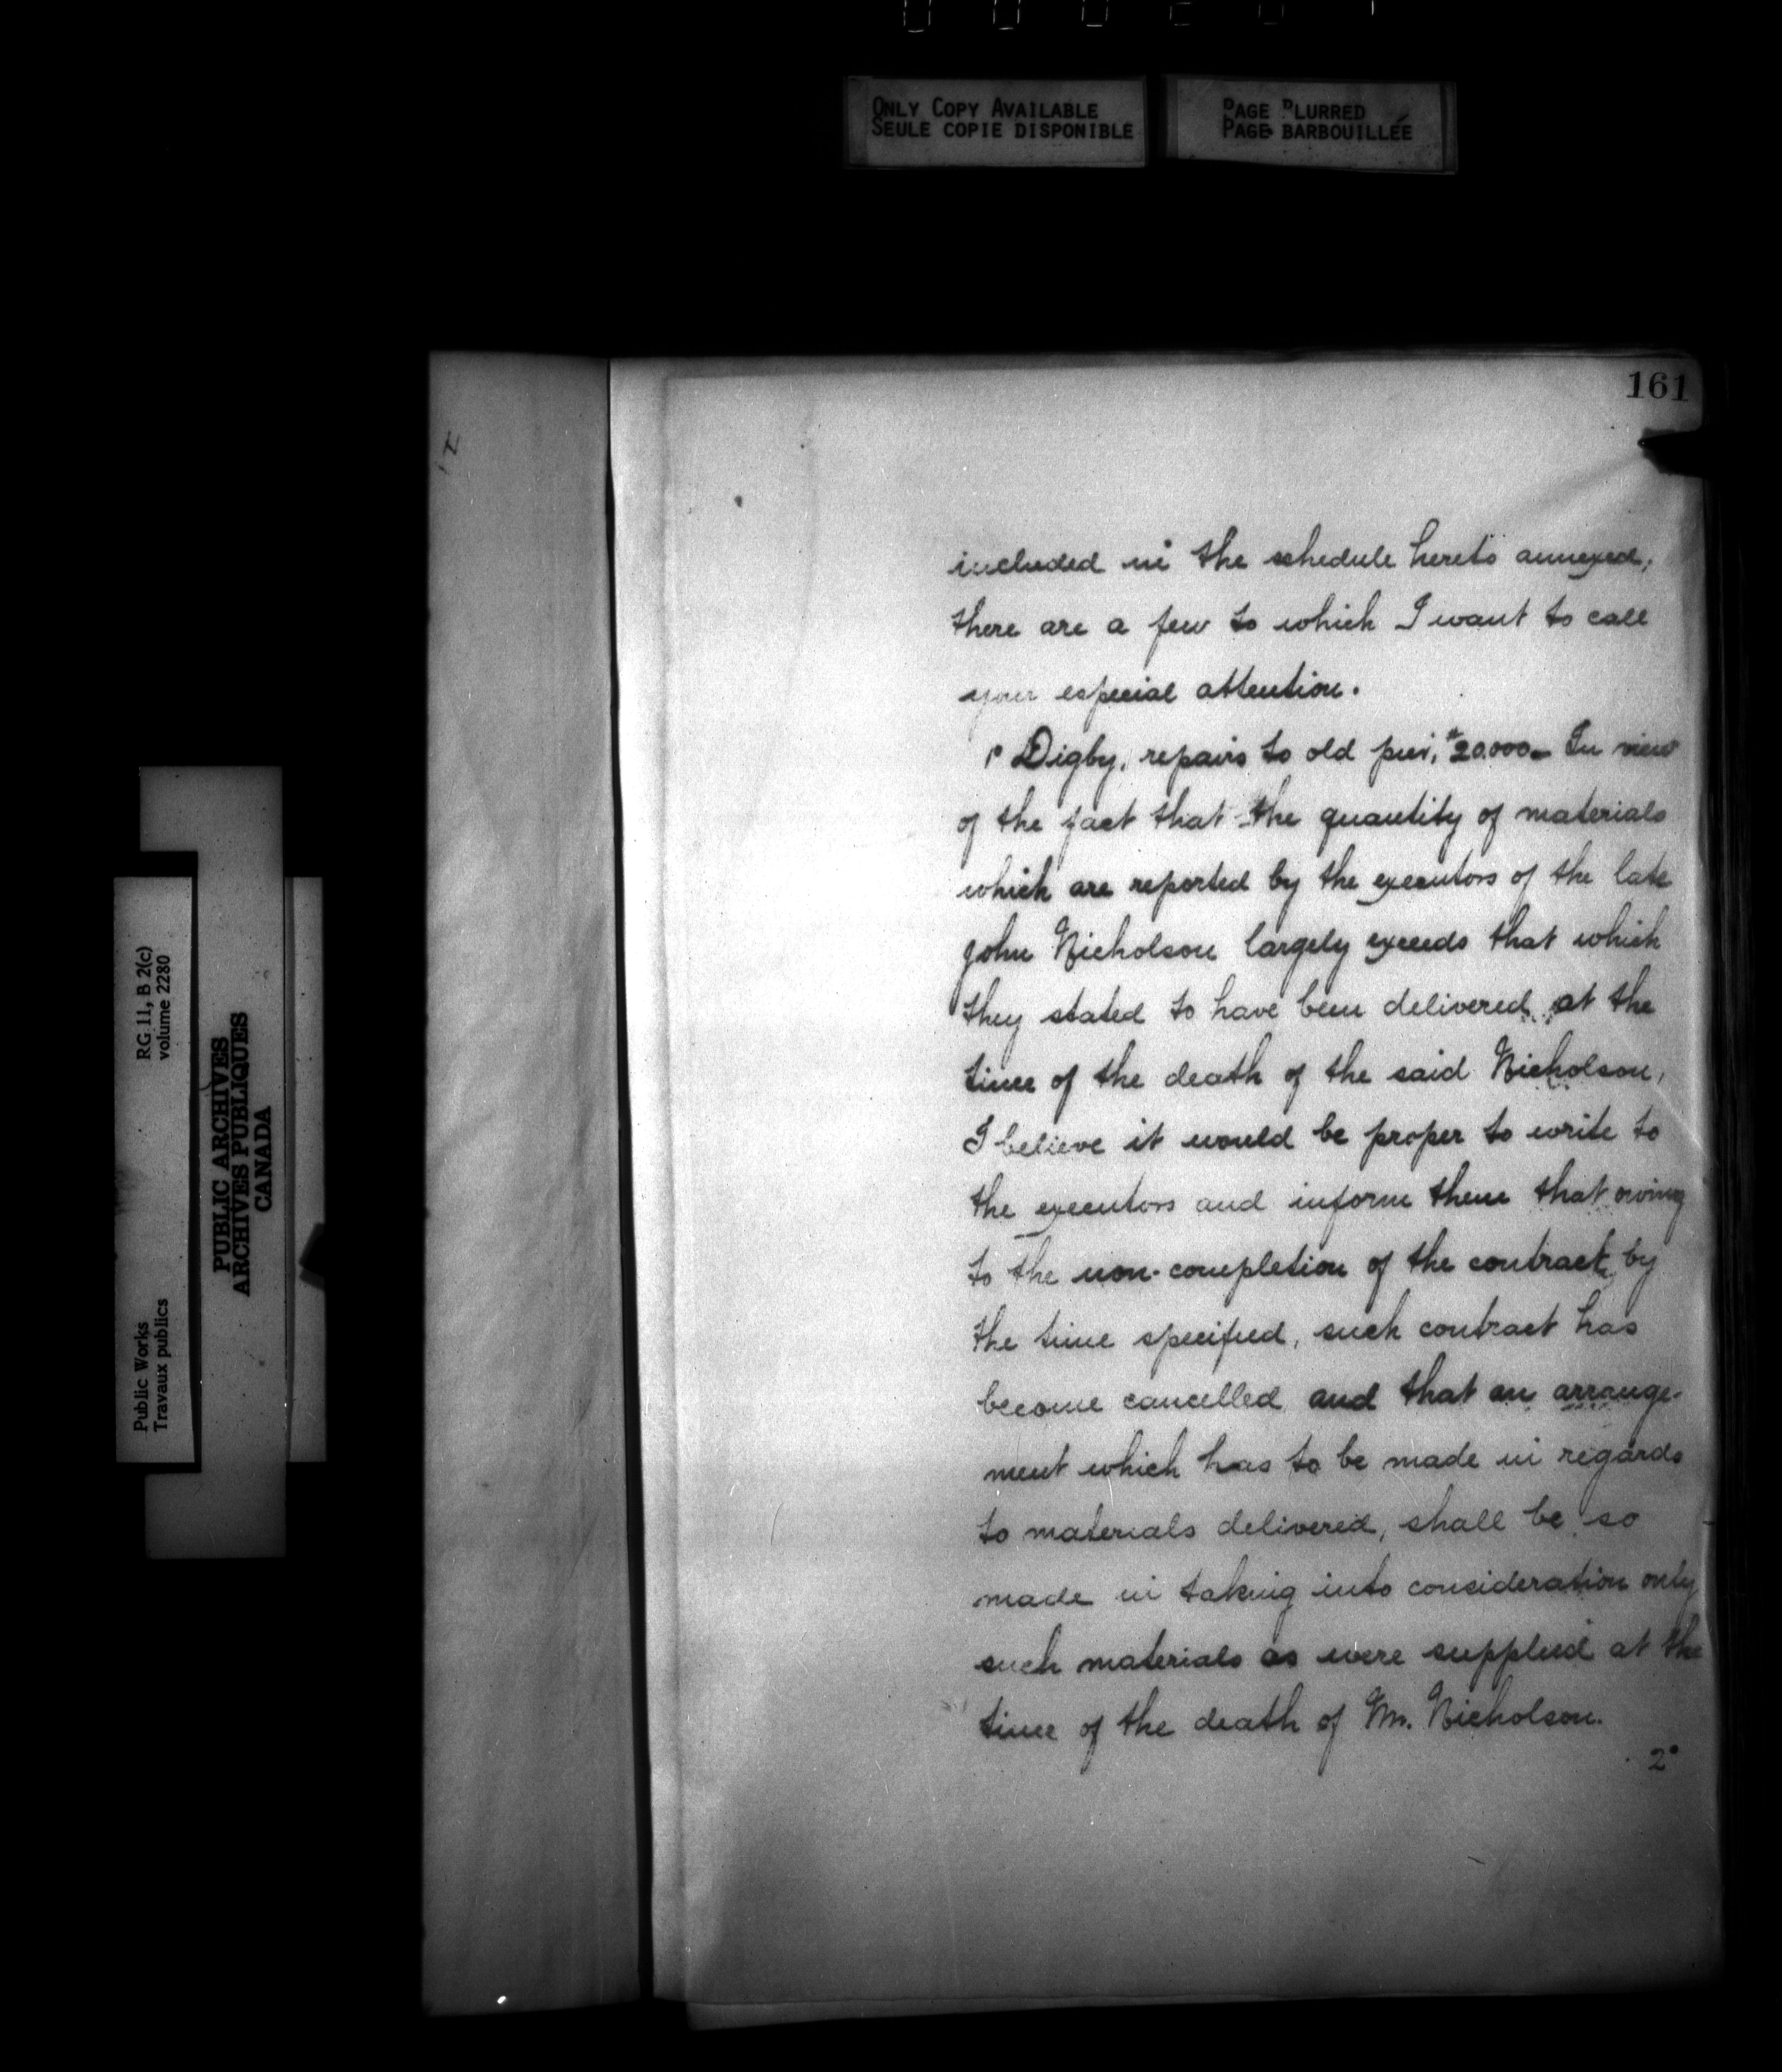 ONLY COPY AVAILABLE
SEULE COPIE DISPONIBLE
PAGE BLURRED
PAGE BARBOUILLÉE
161
included in the schedule hereto annexed,
there are a few to which I want to call
your especial attention.
1° Digby, repairs to old pier, $20.000_ In view
of the fact that the quantity of materials
which are reported by the executors of the late
John Nicholson largely exceeds that which
they stated to have been delivered at the
time of the death of the said Nicholson,
I believe it would be proper to write to
the executors and inform them that owing
to the non-completion of the contract, by
the time specified, such contract has
become cancelled, and that an arrange-
ment which has to be made in regards
to materials delivered, shall be so
made in taking into consideration only
such materials as were supplied at the
time of the death of Mr. Nicholson.
2°
RG 11, B 2(c)
volume 2280
Public Works
Travaux publics
PUBLIC ARCHIVES
ARCHIVES PUBLIQUES
CANADA